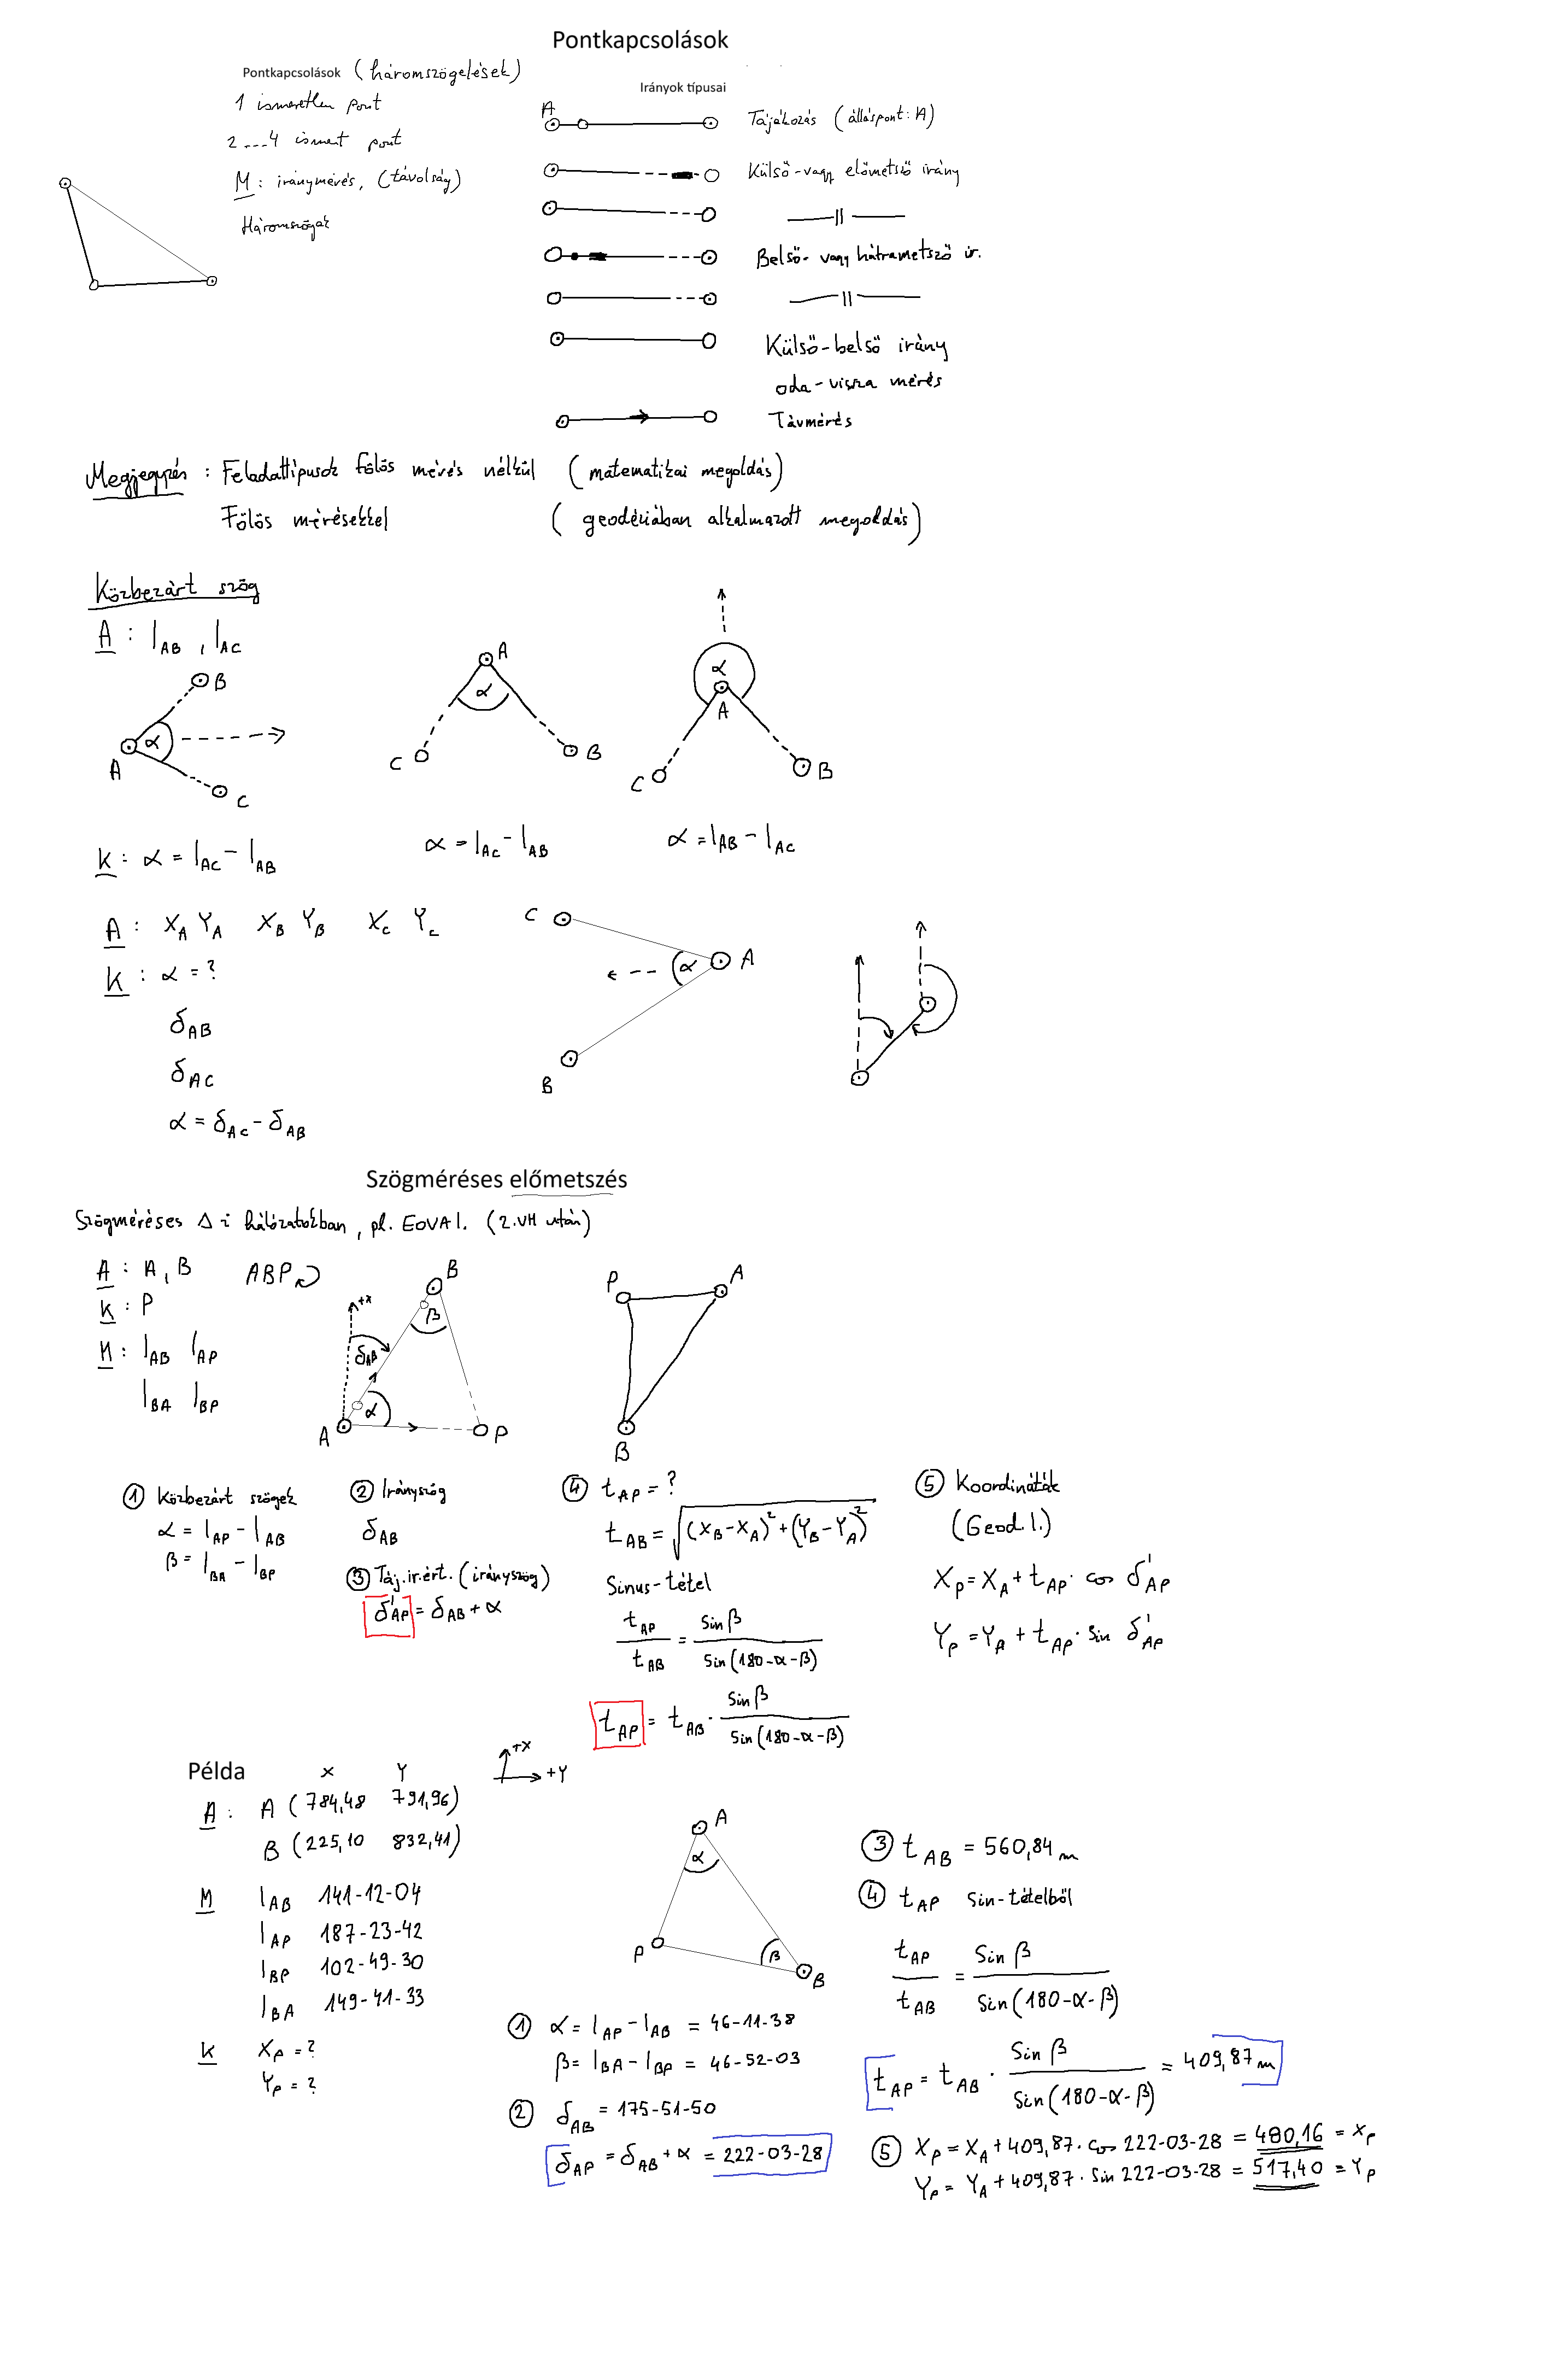 Pontkapcsolások
Pontkapcsolások (háromszögelések)
1 ismeretlen pont
2...4 ismert pont
M: iránymérés, (távolság)
Háromszögek
Irányok típusai
A
Tájékozás (álláspont: A)
Külső-vagy előmetsző irány
—— || ——
Belső- vagy hátrametsző ir.
—— || ——
Külső-belső irány
oda-vissza mérés
Távmérés
Megjegyzés: Feladattípusok fölös mérés nélkül (matematikai megoldás)
Fölös mérésekkel (geodéziában alkalmazott megoldás)
Közbezárt szög
A: l_AB, l_AC
B
α
A
C
A
α
C
B
α
A
C
B
K: α = l_AC - l_AB
α = l_AC - l_AB
α = l_AB - l_AC
A: X_A Y_A X_B Y_B X_C Y_C
K: α = ?
δ_AB
δ_AC
α = δ_AC - δ_AB
C
α
A
B
Szögméréses előmetszés
Szögméréses Δ-i hálózatokban, pl. EOVA I. (2. VH után)
A: A, B
ABP
K: P
M: l_AB l_AP
l_BA l_BP
B
+x
β
δ_AB
α
A
P
P
A
B
① Közbezárt szögek
α = l_AP - l_AB
β = l_BA - l_BP
② Irányszög
δ_AB
③ Táj.ir.ért. (irányszög)
δ'_AP = δ_AB + α
④ t_AP = ?
t_AB = √((X_B-X_A)² + (Y_B-Y_A)²)
Sinus-tétel
t_AP / t_AB = sin β / sin(180-α-β)
t_AP = t_AB · sin β / sin(180-α-β)
⑤ Koordináták
(Geod. I.)
X_P = X_A + t_AP · cos δ'_AP
Y_P = Y_A + t_AP · sin δ'_AP
Példa
x Y
+X
+Y
A: A (784,48 791,96)
B (225,10 832,41)
M l_AB 141-12-04
l_AP 187-23-42
l_BP 102-49-30
l_BA 149-41-33
K X_P = ?
Y_P = ?
A
α
P
β
B
① α = l_AP - l_AB = 46-11-38
β = l_BA - l_BP = 46-52-03
② δ_AB = 175-51-50
δ_AP = δ_AB + α = 222-03-28
③ t_AB = 560,84 m
④ t_AP sin-tételből
t_AP / t_AB = sin β / sin(180-α-β)
t_AP = t_AB · sin β / sin(180-α-β) = 409,87 m
⑤ X_P = X_A + 409,87 · cos 222-03-28 = 480,16 = X_P
Y_P = Y_A + 409,87 · sin 222-03-28 = 517,40 = Y_P